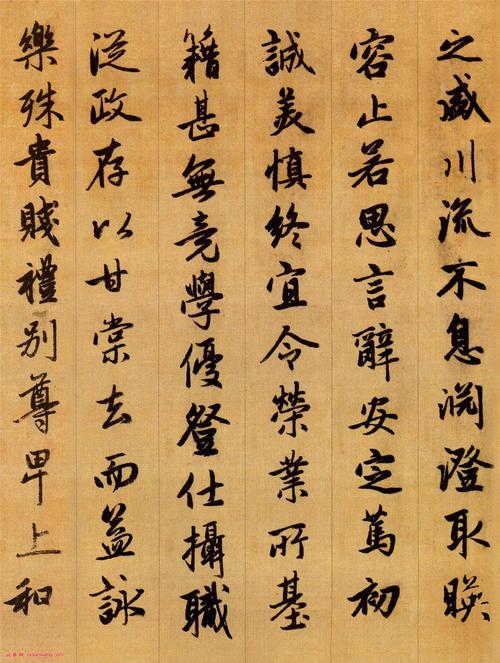 之盛川流不息渊澄取暎
容止若思言辭安定篤初
誠美慎終宜令榮業所基
籍甚無竟學優登仕攝職
從政存以甘棠去而益詠
樂殊貴賤禮別尊卑上和
cidianwang.com